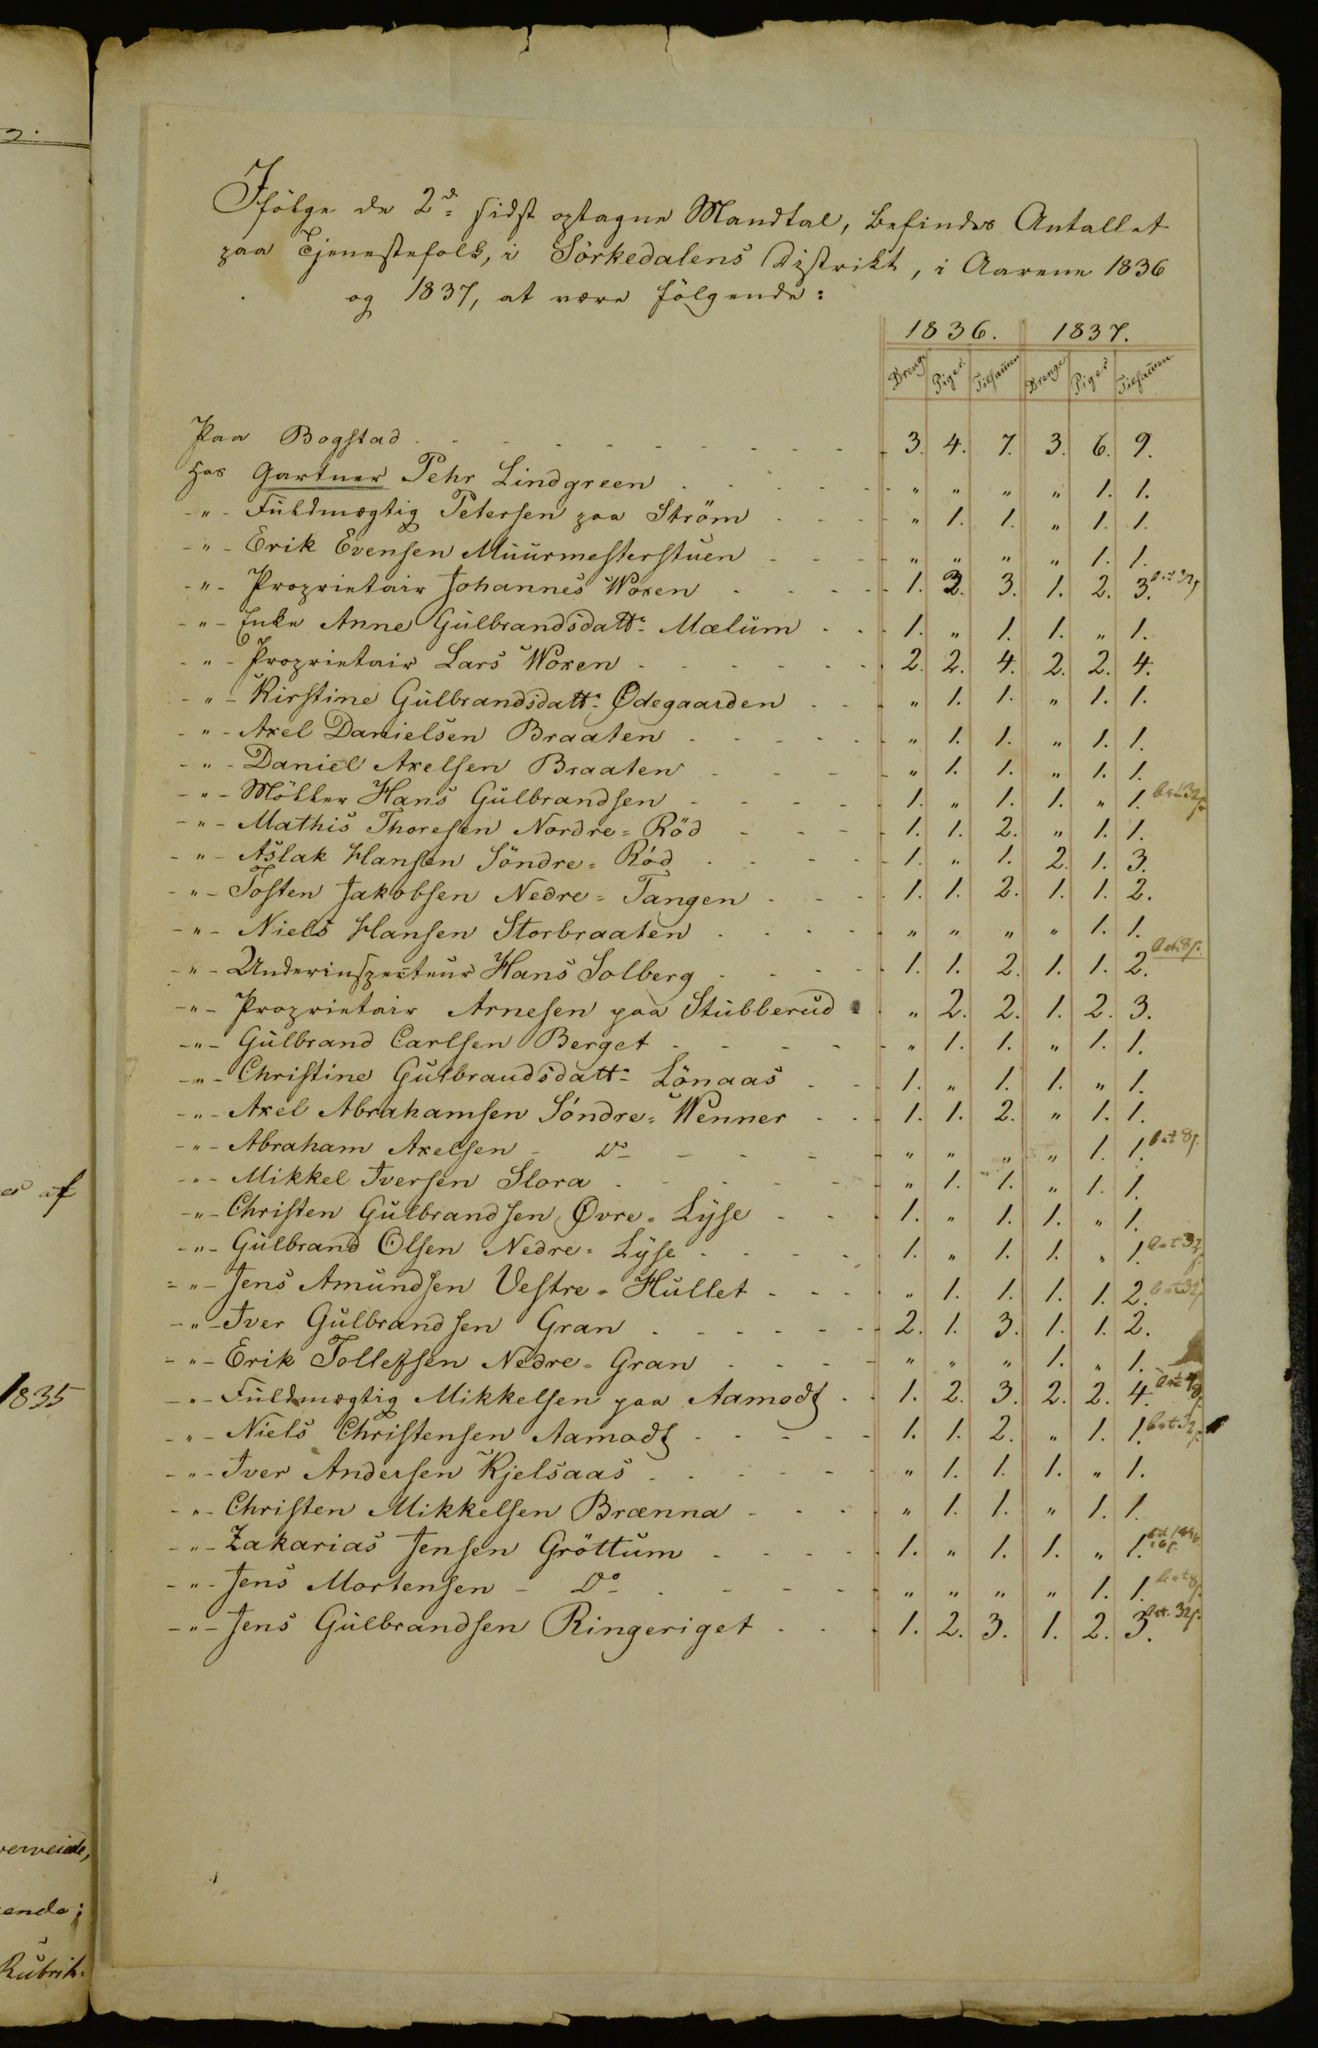 Ifölge de 2de sidst optagne Mandtal, befindes Antallet
paa Tjenestefolk, i Sörkedalens Distrikt, i Aarene 1836
og 1837, at være fölgende:
1836. 1837.
Drenge Piger Tilsammen Drenge Piger Tilsammen
Paa Bogstad 3. 4. 7. 3. 6. 9.
Hos Gartner Pehr Lindgreen " " " " 1. 1.
-"- Fuldmægtig Petersen paa Ström " 1. 1. " 1. 1.
-"- Erik Evensen Muurmesterstuen " " " " 1. 1.
-"- Proprietair Johannes Woxen 1. 2. 3. 1. 2. 3. bet 32s
-"- Enke Anne Gulbrandsdattr Mælum 1. " 1. 1. " 1.
-"- Proprietair Lars Woxen 2. 2. 4. 2. 2. 4.
-"- Kirstine Gulbrandsdattr Ødegaarden " 1. 1. " 1. 1.
-"- Axel Danielsen Braaten " 1. 1. " 1. 1.
-"- Daniel Axelsen Braaten " 1. 1. " 1. 1.
-"- Möller Hans Gulbrandsen 1. " 1. 1. " 1. bet 32s
-"- Mathis Thoresen Nordre=Röd 1. 1. 2. " 1. 1.
-"- Aslak Hansen Söndre=Röd 1. " 1. 2. 1. 3.
-"- Tosten Jakobsen Nedre=Tangen 1. 1. 2. 1. 1. 2.
-"- Niels Hansen Storbraaten " " " " 1. 1.
-"- Underinspecteur Hans Solberg 1. 1. 2. 1. 1. 2. bet 8s.
-"- Proprietair Arnesen paa Stubberud " 2. 2. 1. 2. 3.
-"- Gulbrand Carlsen Berget " 1. 1. " 1. 1.
-"- Christine Gulbrandsdattr Lönaas 1. " 1. 1. " 1.
-"- Axel Abrahamsen Söndre=Wenner 1. 1. 2. " 1. 1.
-"- Abraham Axelsen - Do " " " " 1. 1. bet 8s.
-"- Mikkel Iversen Slora " 1. 1. " 1. 1.
-"- Christen Gulbrandsen Øvre=Lyse 1. " 1. 1. " 1.
-"- Gulbrand Olsen Nedre=Lyse 1. " 1. 1. " 1. bet 32s
-"- Jens Amundsen Vestre=Hullet " 1. 1. 1. 1. 2. bet 32s
-"- Iver Gulbrandsen Gran 2. 1. 3. 1. 1. 2.
-"- Erik Tollefsen Nedre=Gran " " " 1. " 1.
-"- Fuldmægtig Mikkelsen paa Aamodt 1. 2. 3. 2. 2. 4. bet
-"- Niels Christensen Aamodt 1. 1. 2. " 1. 1. bet 32s.
-"- Iver Andersen Kjelsaas " 1. 1. 1. " 1.
-"- Christen Mikkelsen Brænna " 1. 1. " 1. 1.
-"- Zakarias Jensen Gröttum 1. " 1. 1. " 1.
-"- Jens Mortensen - Do " " " " 1. 1. bet 8s.
-"- Jens Gulbrandsen Ringeriget 1. 2. 3. 1. 2. 3. bet. 32s.
af
1835
ende;
Rubrik.